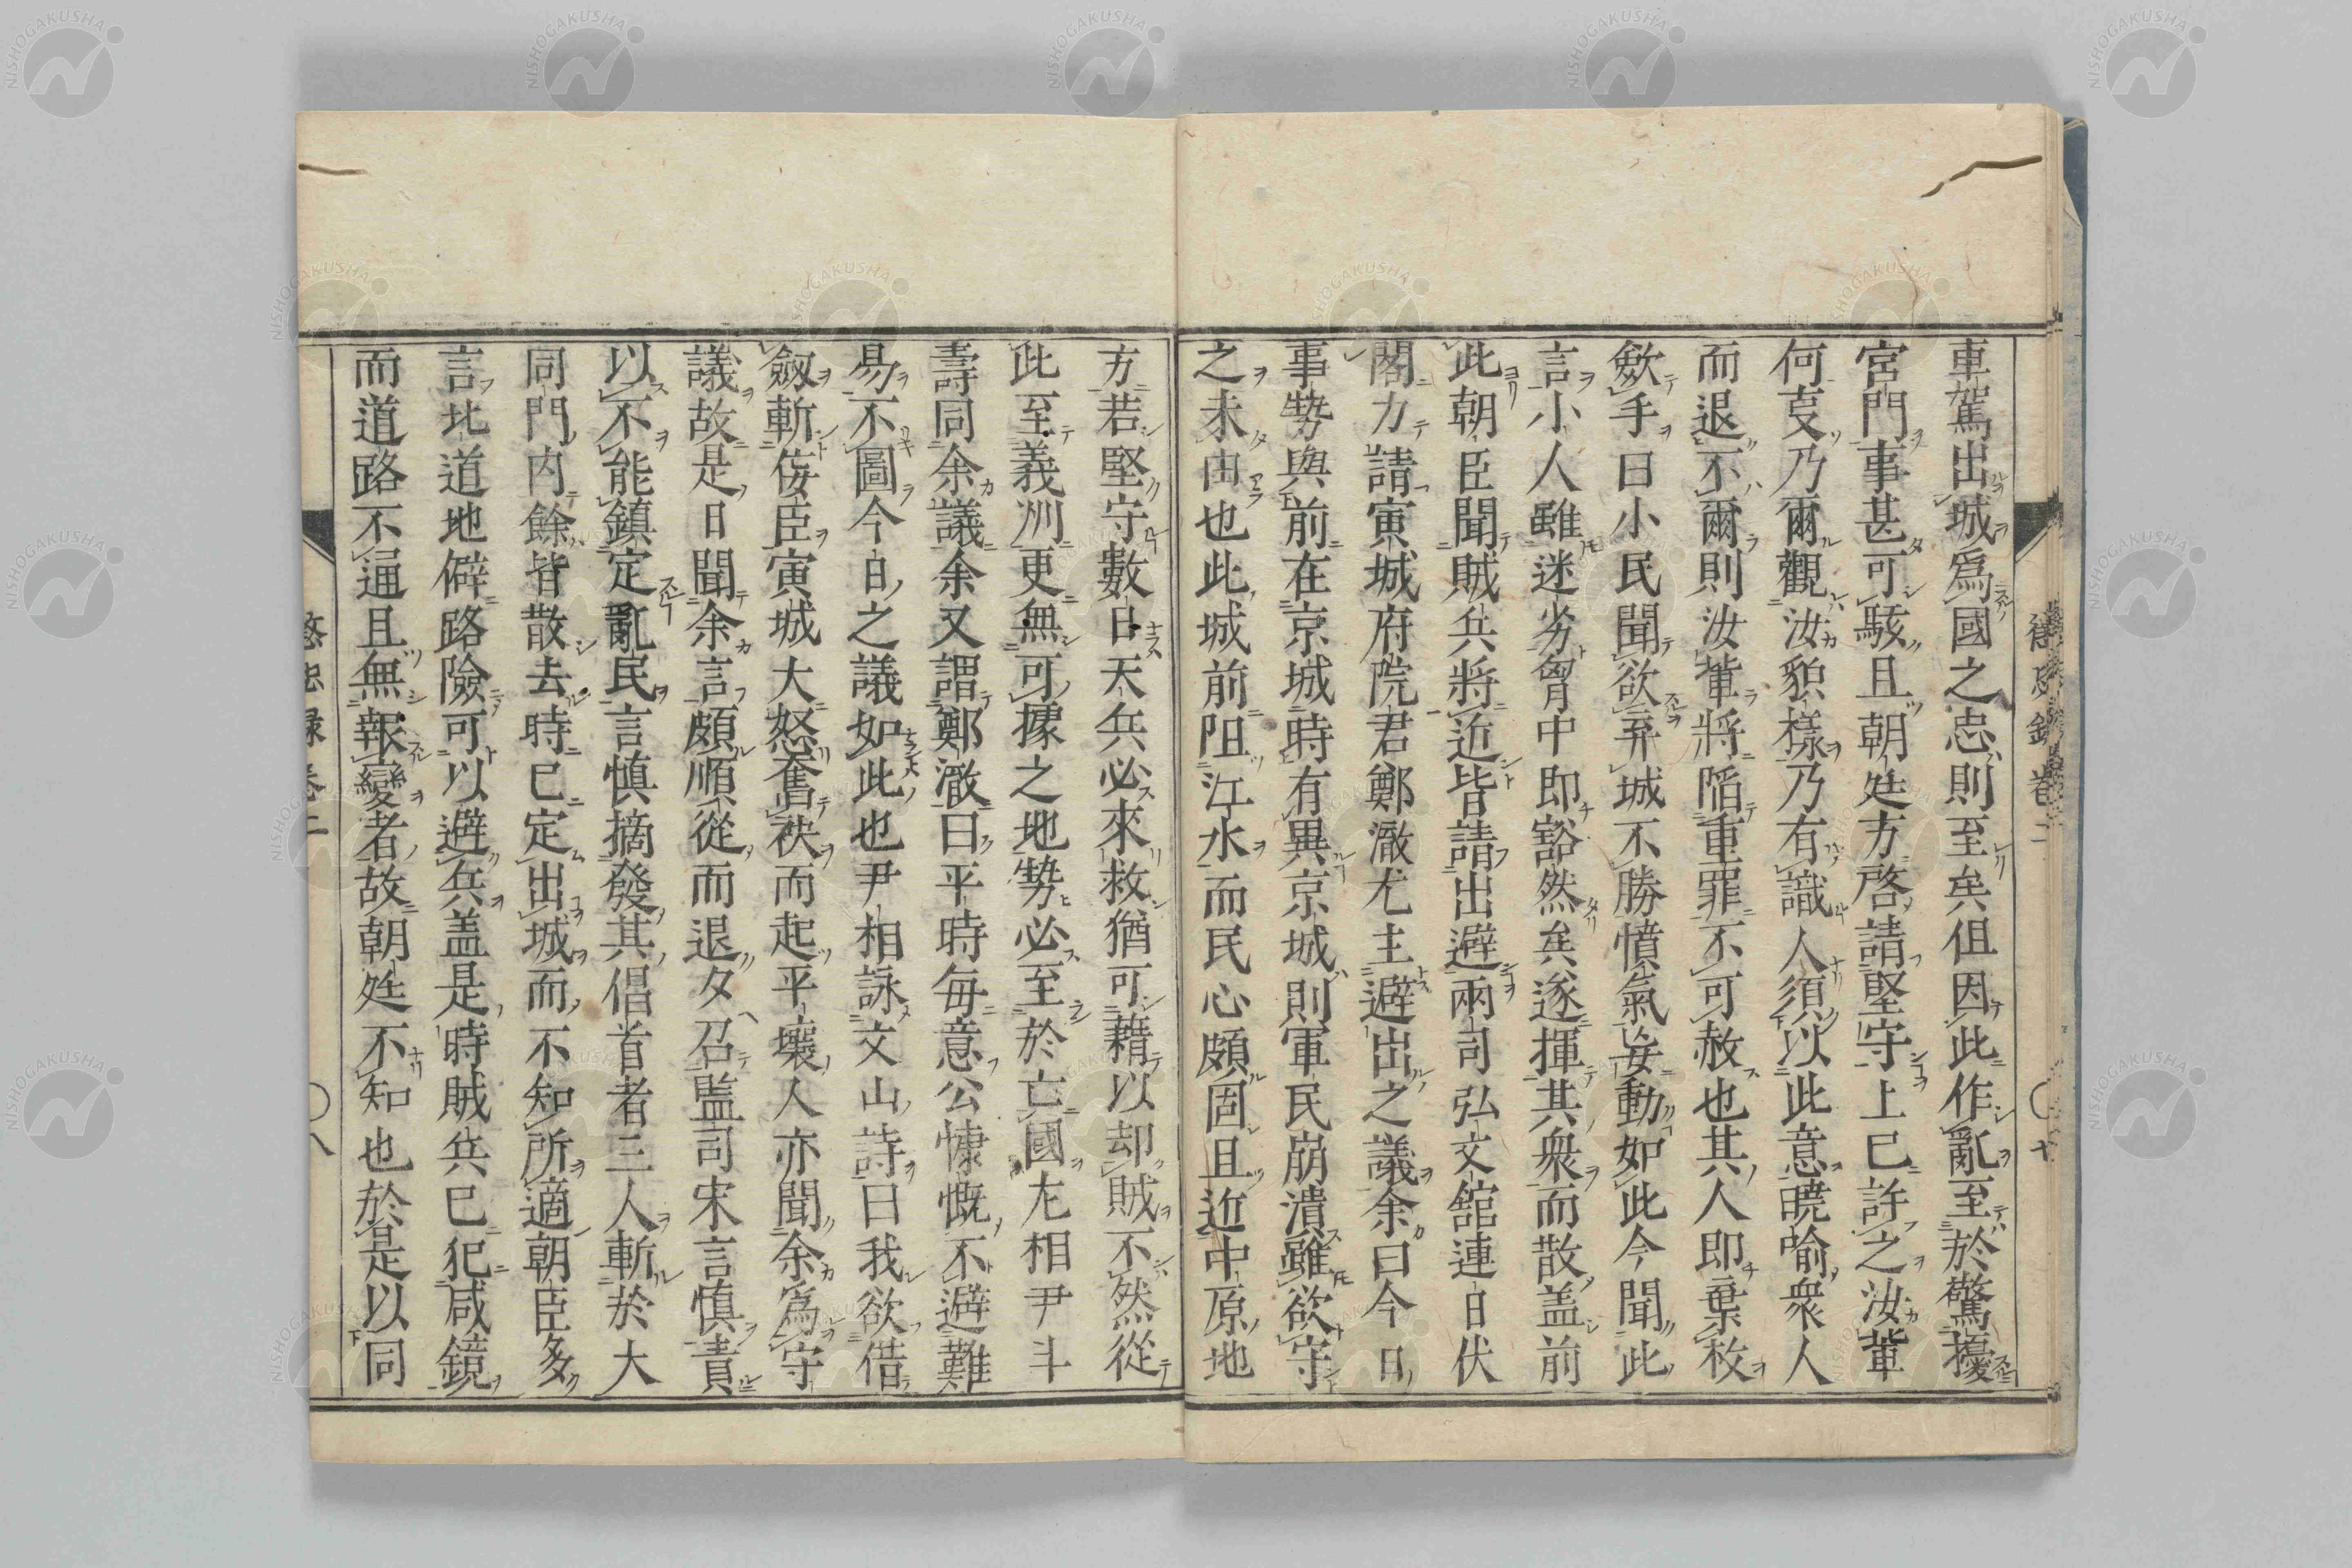 車駕出城爲國之忠則至矣但因此作亂至於驚擾
宮門事甚可駭且朝廷方啓請堅守上已許之汝輩
何㕝乃爾觀汝貌樣乃有識人須以此意曉喻衆人
而退不爾則汝輩將陷重罪不可赦也其人即棄杖
歛手曰小民聞欲弃城不勝憤氣妄動如此今聞此
言小人雖迷劣胷中即豁然矣遂揮其衆而散盖前
此朝臣聞賊兵將近皆請出避兩司弘文舘連日伏
閤力請寅城府院君鄭澈尤主避出之議余曰今日
事勢與前在京城時有異京城則軍民崩潰雖欲守
之未由也此城前阻江水而民心頗固且近中原地
方若堅守數日天兵必來救猶可藉以却賊不然從
此至義洲更無可據之地勢必至於亡國左相尹斗
壽同余議余又謂鄭澈曰平時每意公慷慨不避難
易不圖今日之議如此也尹相詠文山詩曰我欲借
劔斬侫臣寅城大怒奮袂而起平壤人亦聞余爲守
議故是日聞余言頗順從而退夕召監司宋言慎責
以不能鎮定亂民言慎摘發其倡首者三人斬於大
同門内餘皆散去時已定出城而不知所適朝臣多
言北道地僻路險可以避兵盖是時賊兵已犯咸鏡
而道路不通且無報變者故朝廷不知也於是以同
懲毖録 卷二
八